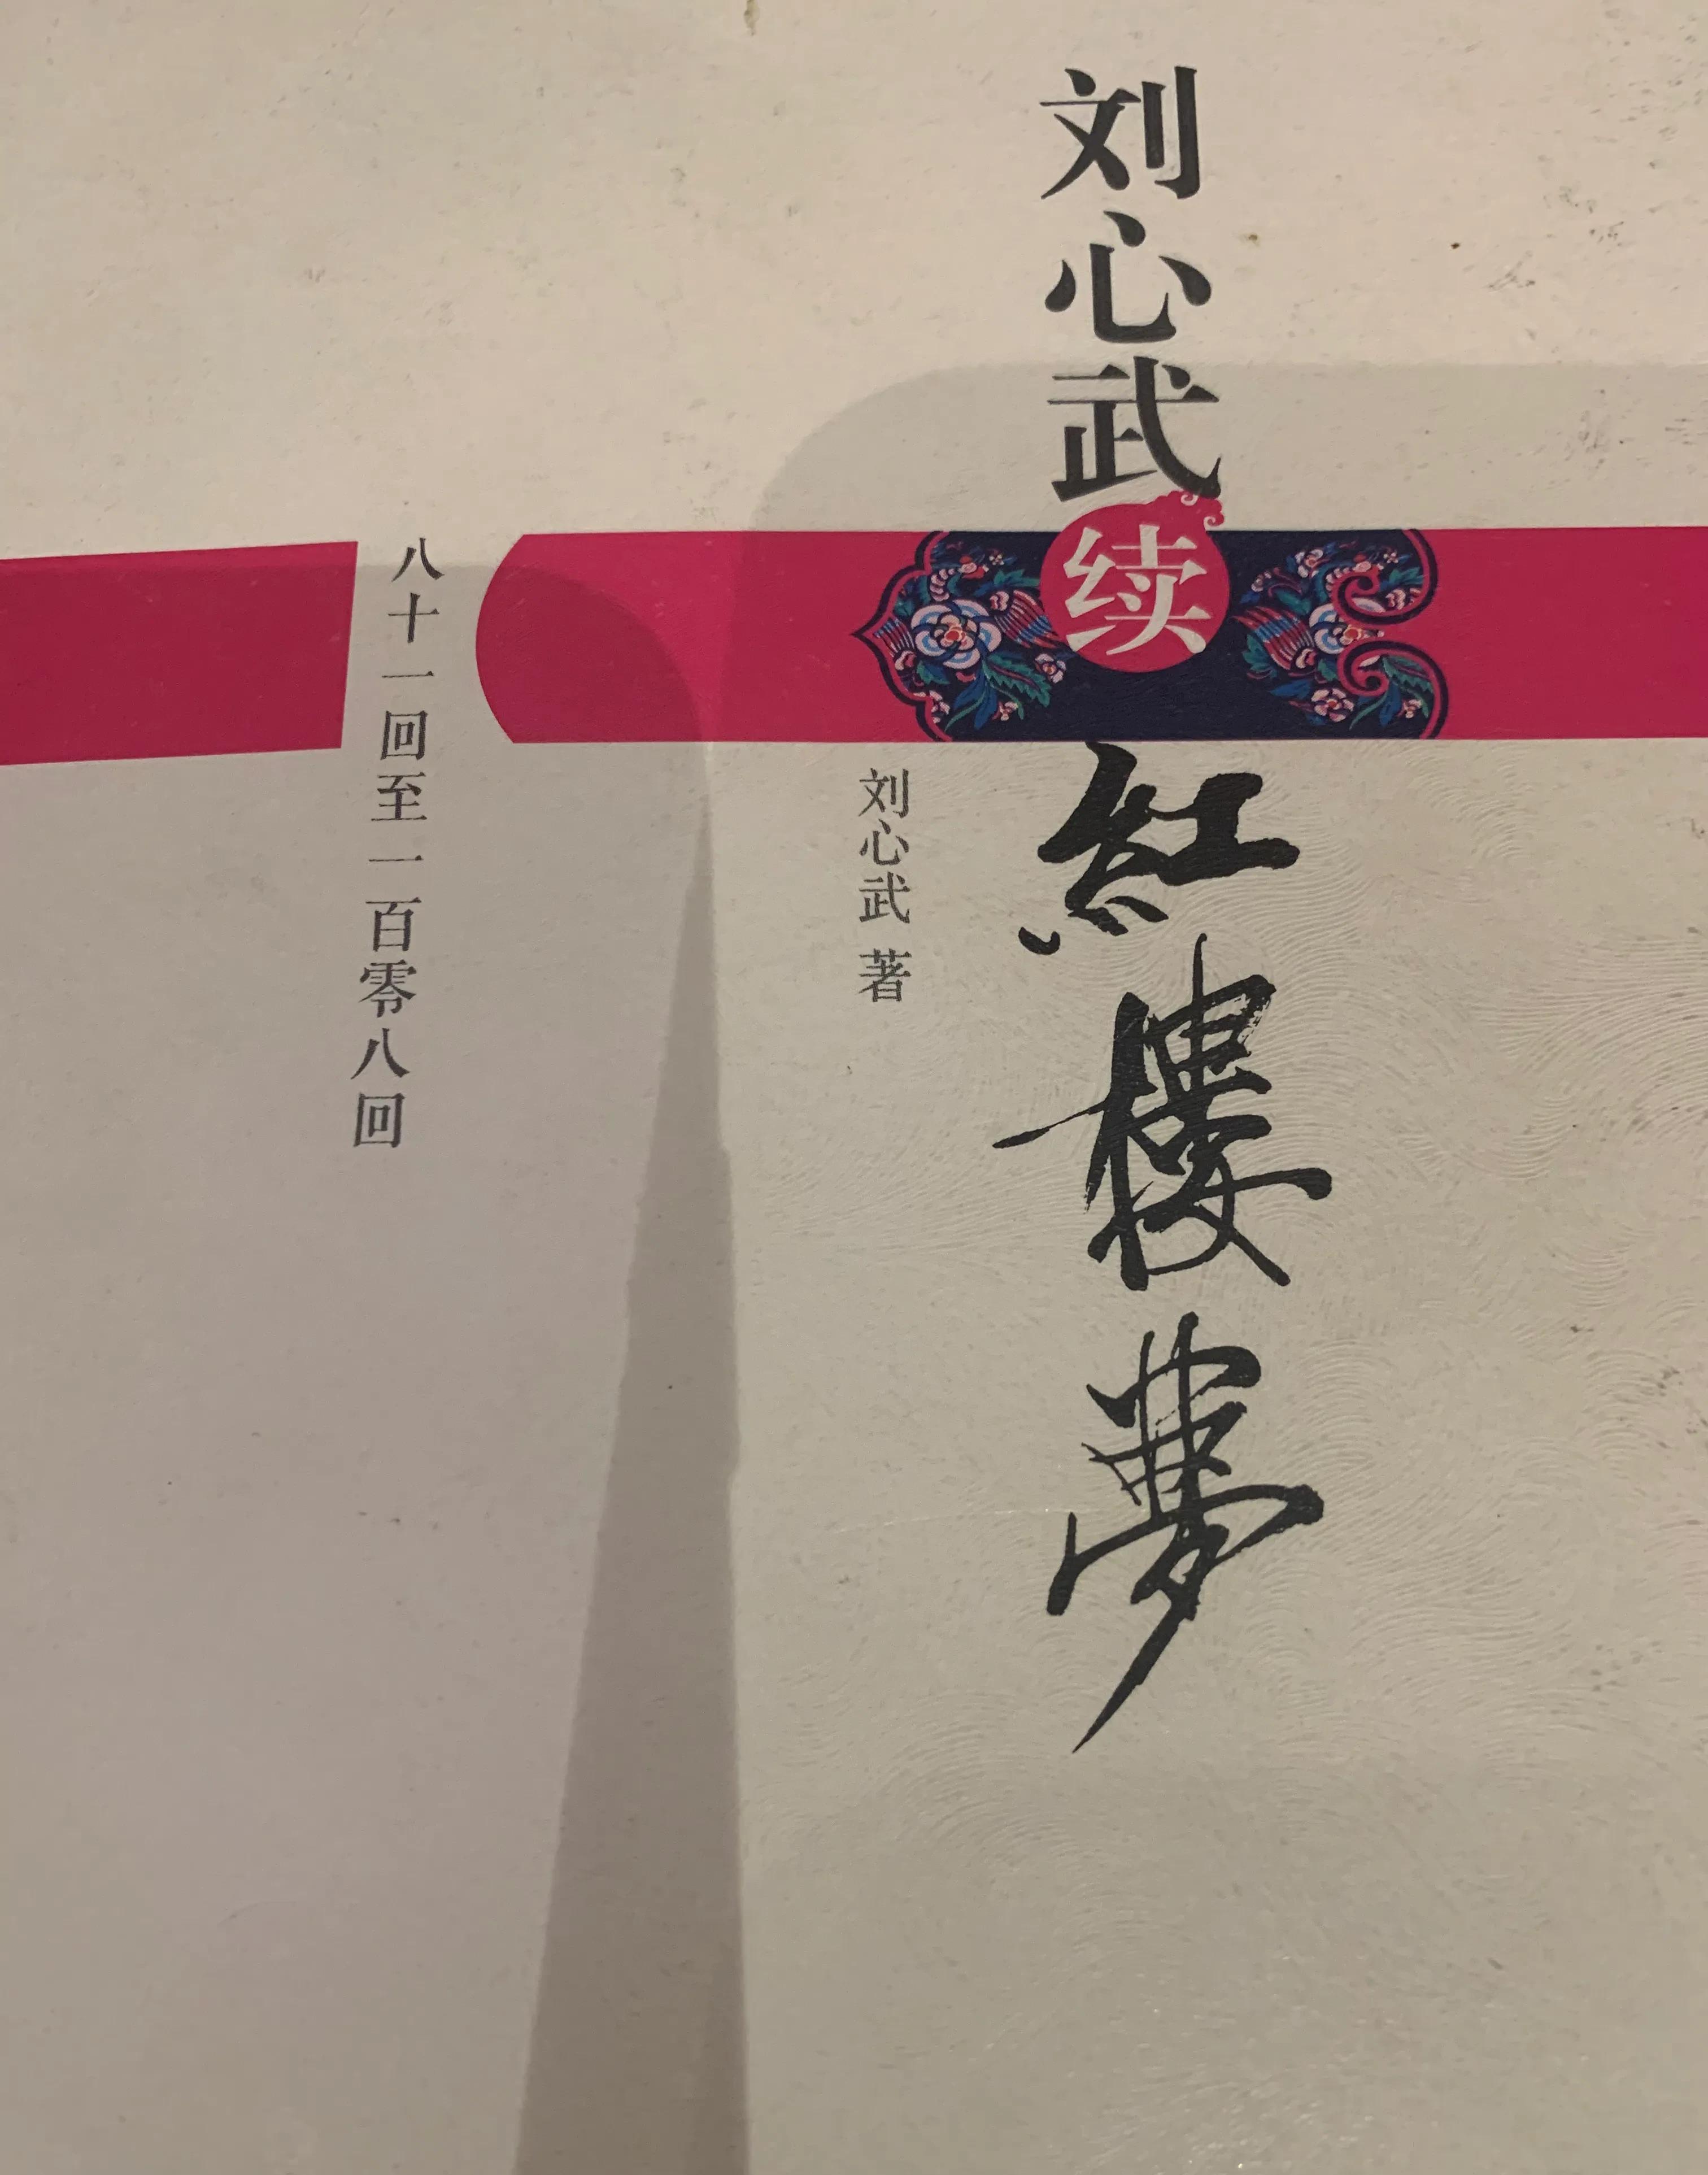 刘心武续紅樓夢
刘心武 著
八十一回至一百零八回